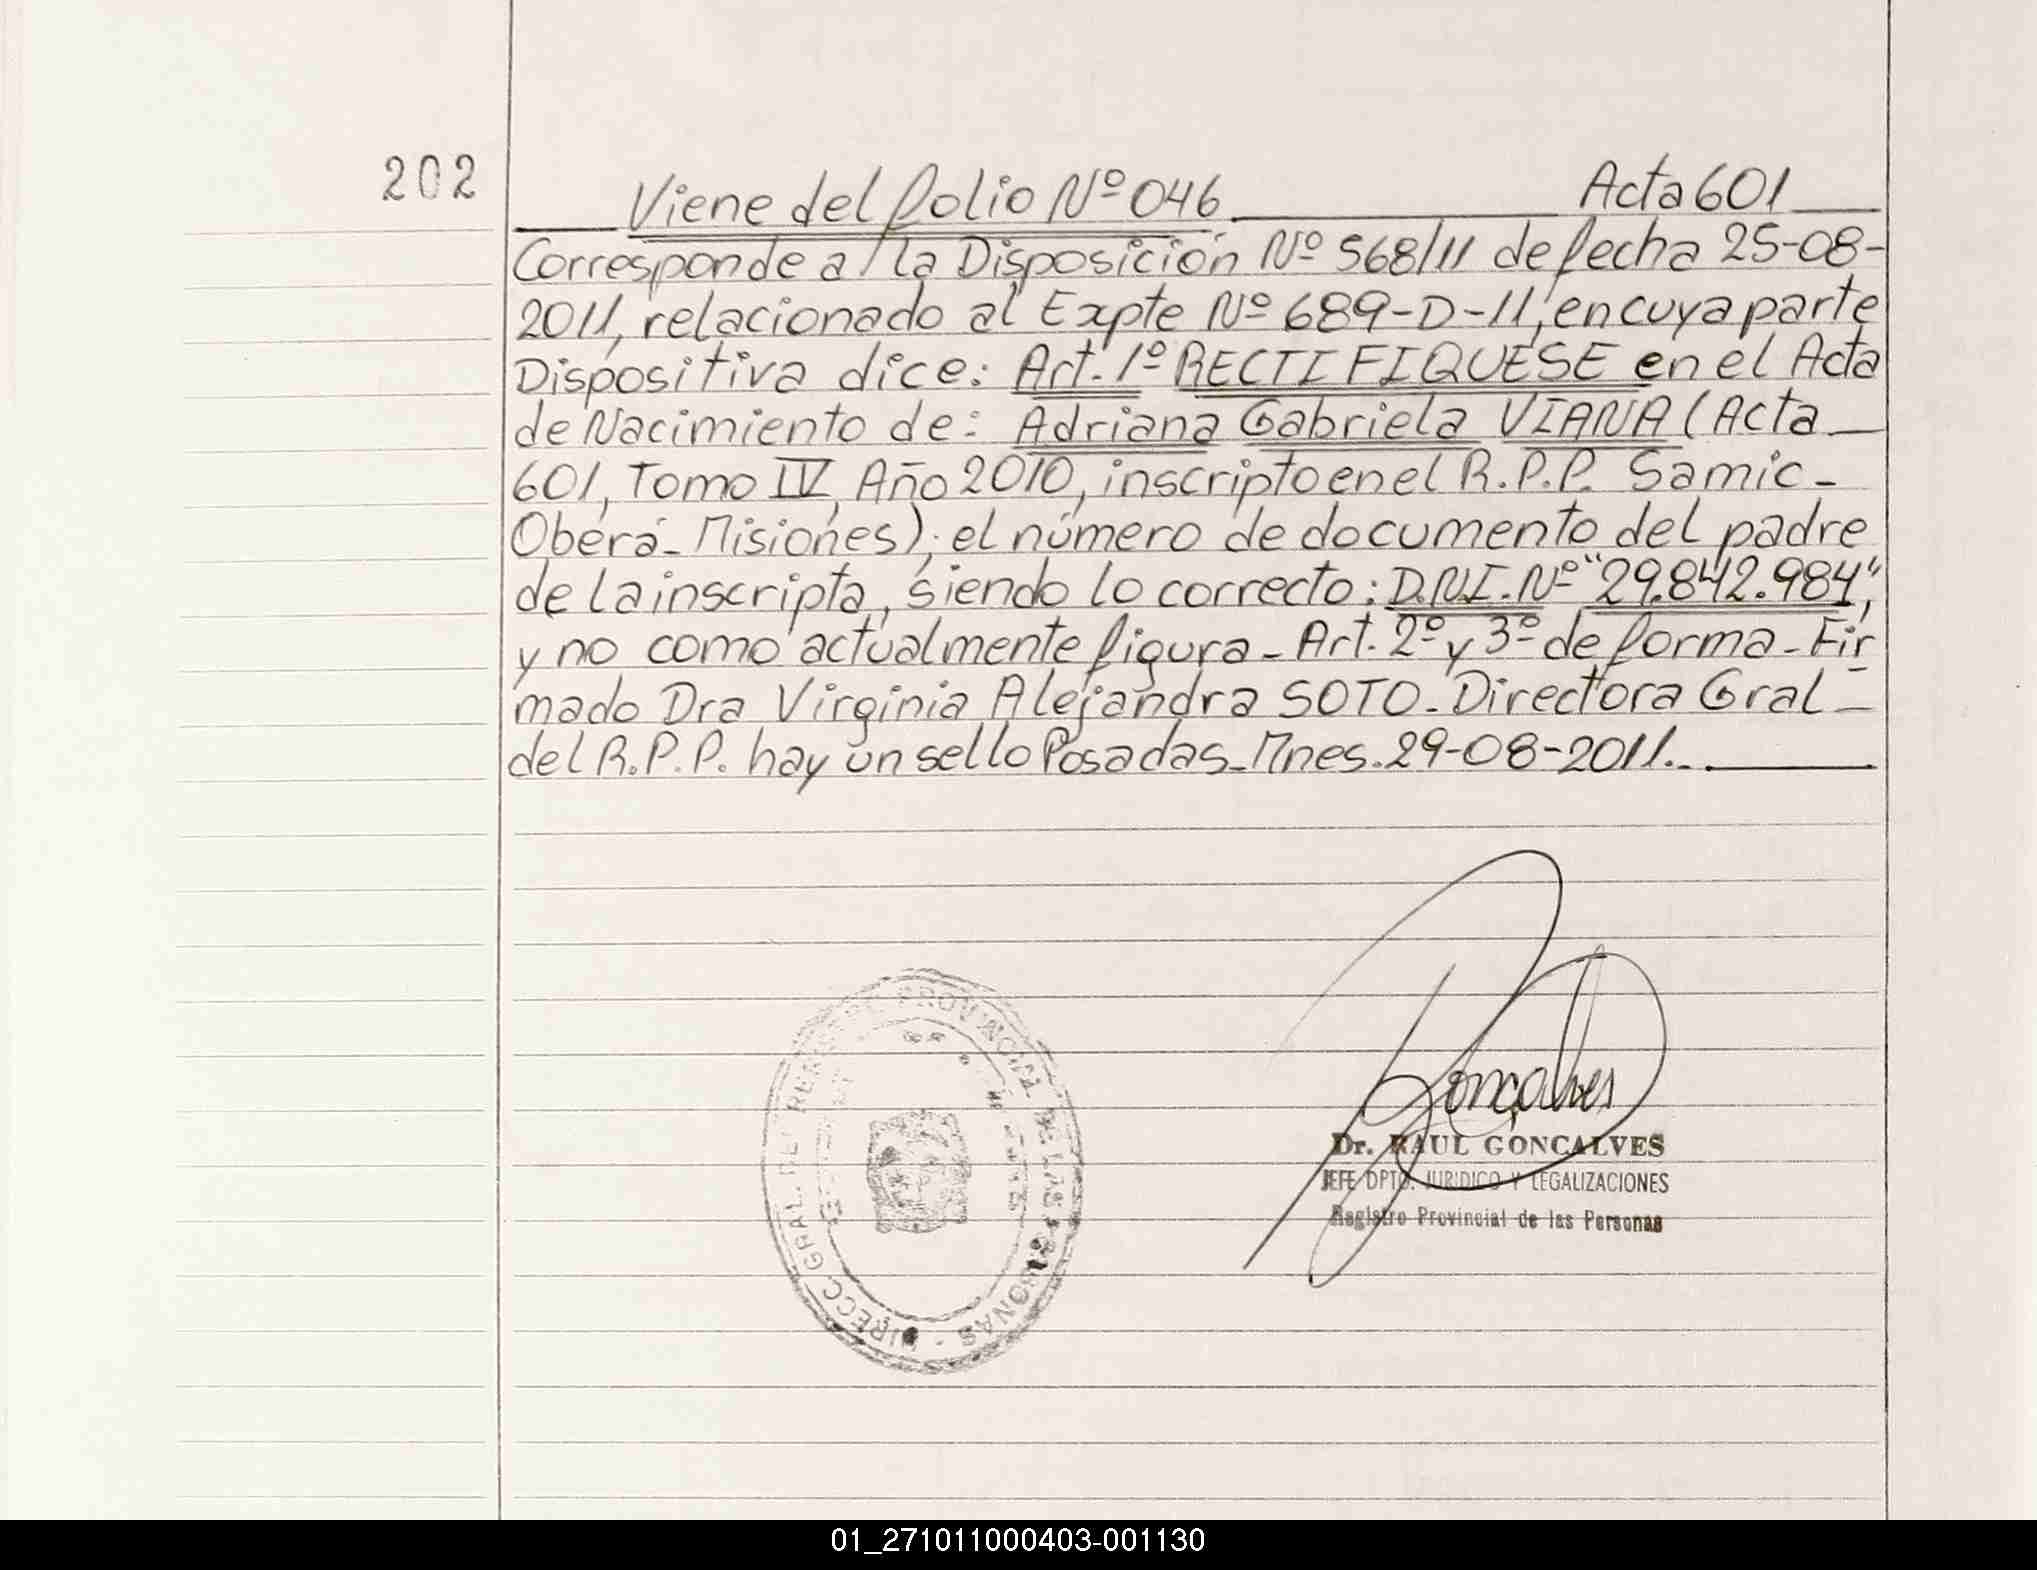 202
Viene del folio Nº 046 Acta 601
Corresponde a la Disposición Nº 568/11 de fecha 25-08-
2011, relacionado al Expte Nº 689-D-11, en cuya parte
Dispositiva dice: Art. 1º RECTIFIQUESE en el Acta
de Nacimiento de: Adriana Gabriela VIANA (Acta
601, Tomo IV, Año 2010, inscripto en el R.P.P. Samic-
Oberá- Misiones); el número de documento del padre
de la inscripta, siendo lo correcto: D.N.I. Nº "29.842.984",
y no como actualmente figura- Art. 2º y 3º de forma- Fir-
mado Dra Virginia Alejandra SOTO- Directora Gral
del R.P.P. hay un sello Posadas- Mnes. 29-08-2011.-
DIRECC. GRAL. DEL REGISTRO PROVINCIAL DE LAS PERSONAS -
Goncalves
Dr. RAUL GONCALVES
JEFE DPTO. JURIDICO Y LEGALIZACIONES
Registro Provincial de las Personas
01_271011000403-001130